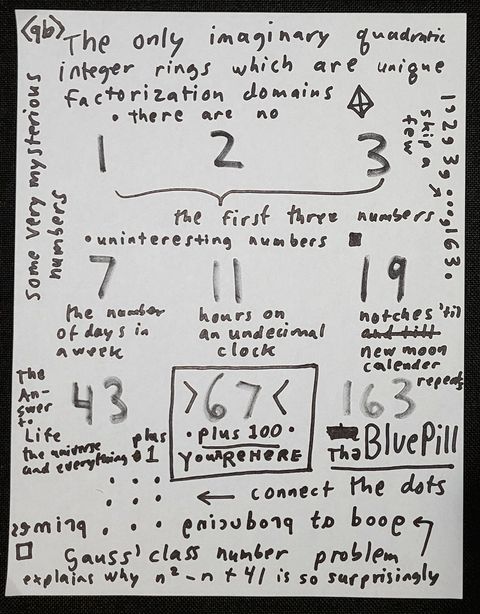 <qb>
The only imaginary quadratic
integer rings which are unique
factorization domains
• there are no
some very mysterious
numbers
skip a
few
1 2 3
the first three numbers
• uninteresting numbers ■
7 11 19
the number
of days in
a week
hours on
an undecimal
clock
notches 'til
and till
new moon
calender
repeats
The
An-
swer
to
Life
the universe
and everything
plus
1
43
>67<
• plus 100 •
YouReHERE
163
The Blue Pill
← connect the dots
good at producing
primes
Gauss' class number problem
explains why n² - n + 41 is so surprisingly